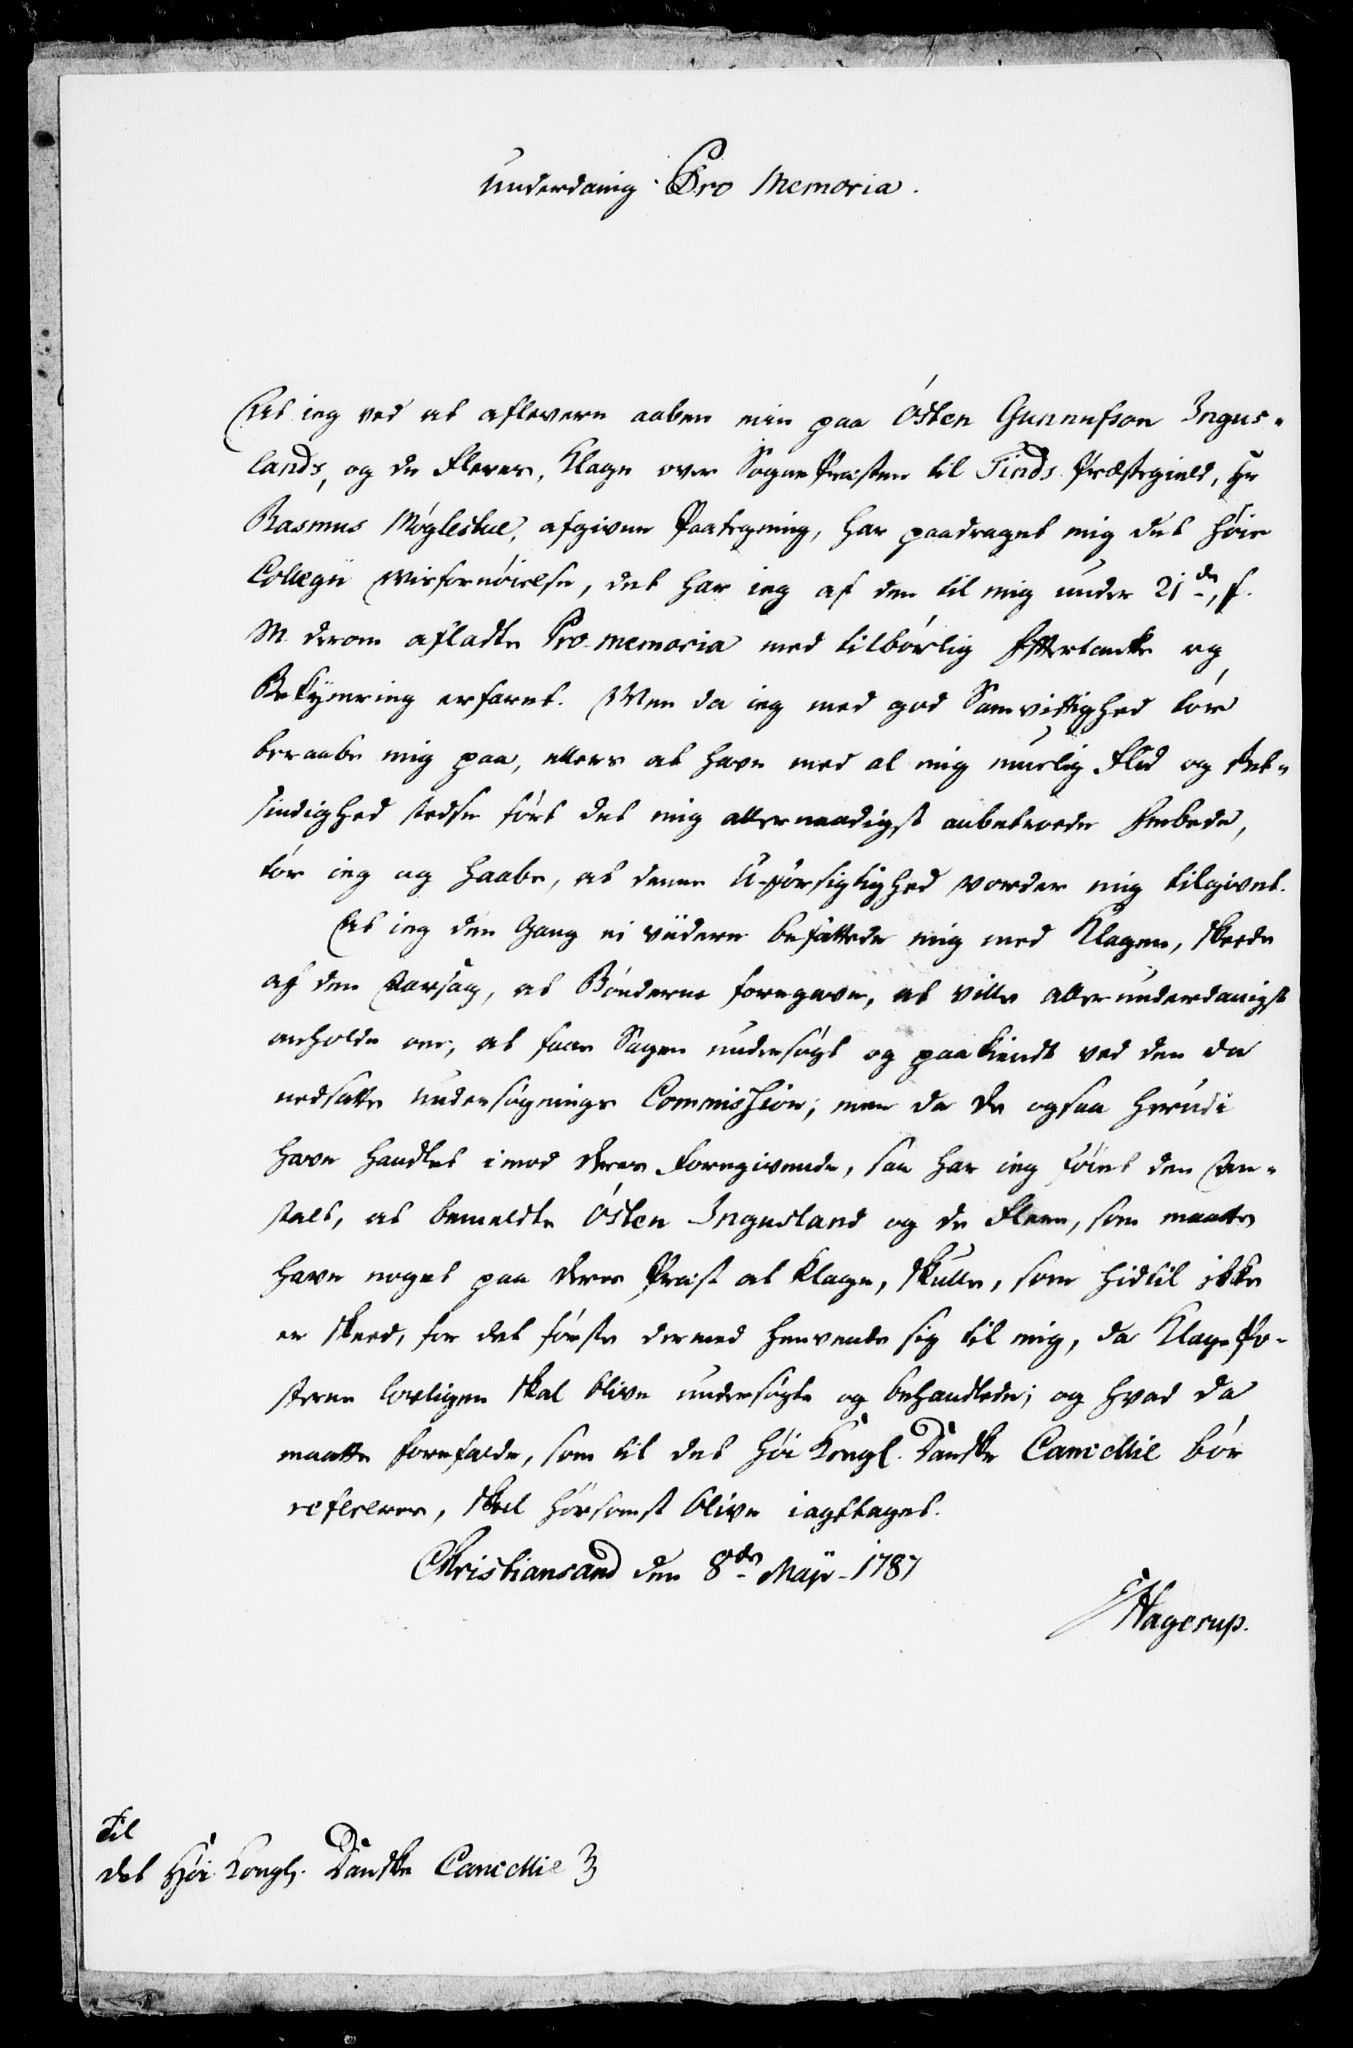 Underdanig Pro Memoria.
At jeg ved at aflevere aaben min paa Østen Gunnufson Ingus-
lands, og de Fleres, Klage over Sogne Præsten til Tinds Præstegield, Hr
Rasmus Møglestue, afgivne Paategning, har paadraget mig det høie
Collegii Misfornøielse, det har ieg af den til mig under 21de, f.
M. derom afladte Pro-memoria med tilbørlig Eftertanke og
Bekymring erfaret. Men da ieg med god Samvittighed tør
beraabe mig paa, ellers at have med al mig muelig Flid og Ret-
sindighed stedse ført det mig allernaadigst anbetroede Embede,
tør ieg og haabe, at denne U-forsigtighed vorder mig tilgivet.
At ieg den Gang ei viidere befattede mig med Klagen, skeede
af den Aarsag, at Bønderne foregave, at ville allerunderdanigst
anholde om, at faae Sagen undersøgt og paakiendt ved den da
nedsatte Undersøgnings Commission; men da de ogsaa herudi
have handlet imod deres Foregivende, saa har ieg føiet den An-
stalt, at bemeldte Østen Ingusland og de Flere, som maatte
have noget paa deres Præst at klage, skulle, som hidtil ikke
er skeed, for det første dermed henvende sig til mig, da Klage Po-
sterne lovligen skal blive undersøgte og behandlede; og hvad da
maatte forefalde, som til det høi Kongl. Danske Cancellie bør
refereres, skal hørsomst blive iagttaget.
Christiansand den 8de Maji 1787
Hagerup.
Til
det Høi Kongl. Danske Cancellie